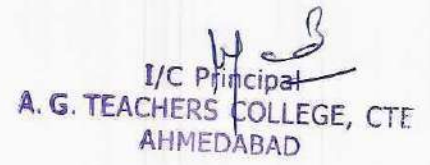 I/C Principal
A. G. TEACHERS COLLEGE, CTE
AHMEDABAD